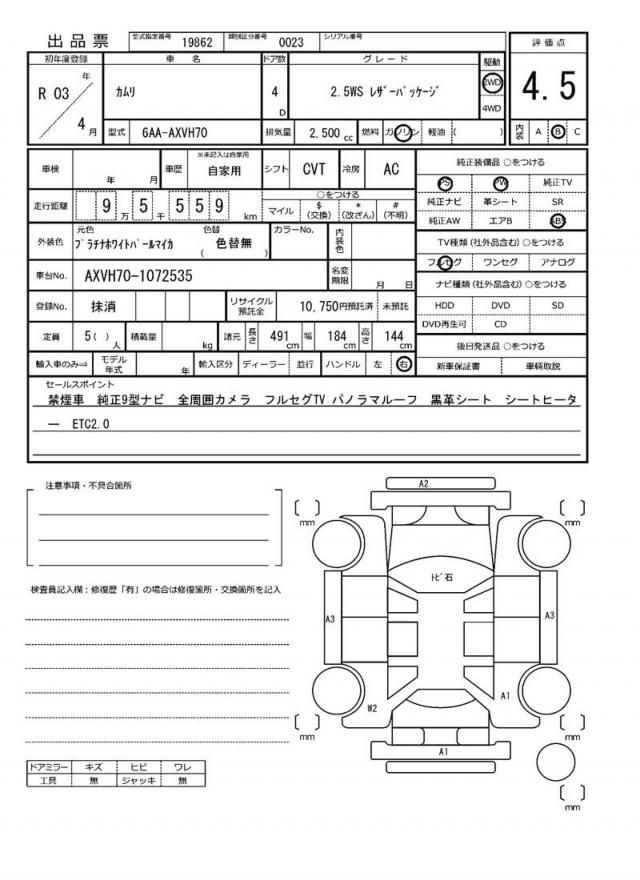 出品票 型式指定番号 19862 類別区分番号 0023 シリアル番号
初年度登録 車名 ドア数 グレード 駆動 評価点
R 03 年 4 月 カムリ 4 D 2.5WS レザーパッケージ 2WD 4WD 4.5
型式 6AA-AXVH70 排気量 2,500 cc 燃料 ガソリン 軽油 ( ) 内装 A B C
車検 年 月 車歴 ※未記入は自家用 自家用 シフト CVT 冷房 AC 純正装備品 ○をつける
PS PW 純正TV
走行距離 9 万 5 千 5 5 9 km ○をつける マイル $ (交換) * (改ざん) # (不明) 純正ナビ 革シート SR
純正AW エアB ABS
外装色 元色 プラチナホワイトパールマイカ 色替 ( 色替無 ) カラーNo. 内装色 TV種類 (社外品含む) ○をつける
フルセグ ワンセグ アナログ
車台No. AXVH70-1072535 名変期限 月 日 ナビ種類 (社外品含む) ○をつける
登録No. 抹消 リサイクル預託金 10,750円預託済 未預託 HDD DVD SD
DVD再生可 CD
定員 5 ( ) 人 積載量 kg 諸元 長さ 491 cm 幅 184 cm 高さ 144 cm 後日発送品 ○をつける
輸入車のみ⇒ モデル年式 年 輸入区分 ディーラー 並行 ハンドル 左 右 新車保証書 車輌取説
セールスポイント
禁煙車 純正9型ナビ 全周囲カメラ フルセグTV パノラマルーフ 黒革シート シートヒータ
ー ETC2.0
注意事項・不具合箇所
A2
mm mm
検査員記入欄：修復歴「有」の場合は修復箇所・交換箇所を記入
トビ石
A3 A3
W2 A1
mm mm
A1
ドアミラー キズ ヒビ ワレ
工具 無 ジャッキ 無
mm